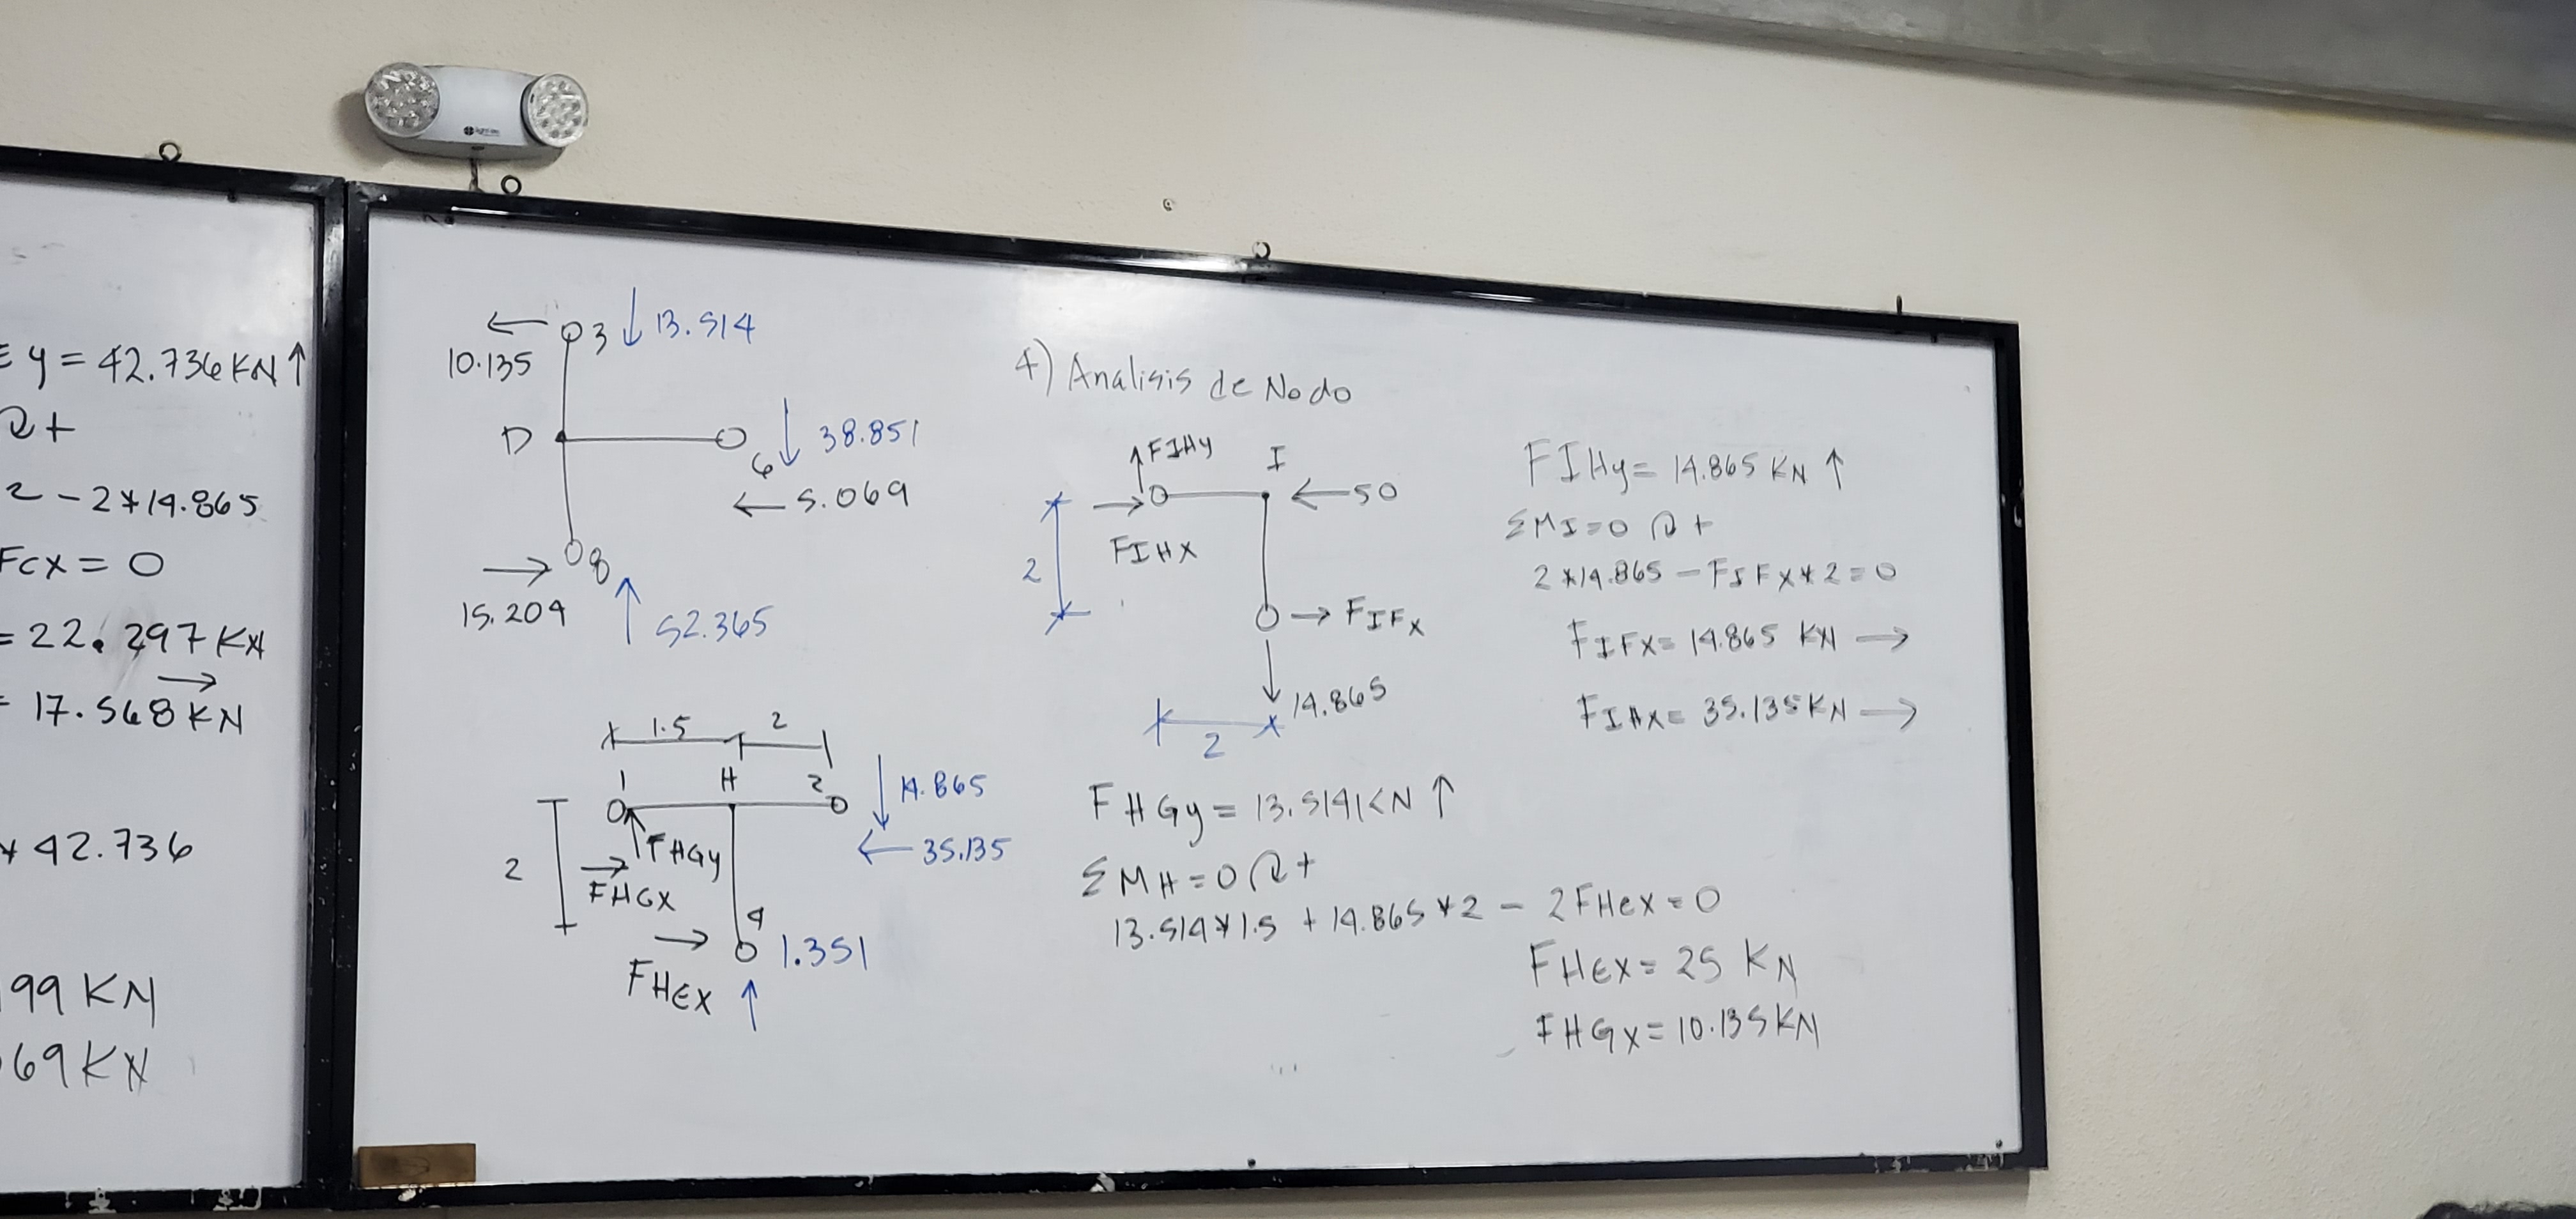 E y = 42.736 KN ↑
+
2 - 2*14.865
Fcx = 0
= 22.297 KN
= 17.568 KN →
* 42.736
99 KN
69 KN
← 3 ↓ 13.514
10.135
D
6 ↓ 38.851
← 5.069
→ 8
15.204 ↑ 52.365
1.5 2
1 H 2 ↓ 14.865
← 35.135
2
FHGy
→
FHGX
→ 4 1.351
FHEX ↑
4) Analisis de Nodo
↑ FIHy I
→ ← 50
FIHX
2
→ FIFX
↓ 14.865
2
FIHy = 14.865 KN ↑
ΣMI=0 +
2*14.865 - FIFX*2=0
FIFX= 14.865 KN →
FIHX= 35.135 KN →
FHGy = 13.514 KN ↑
ΣMH=0 +
13.514*1.5 + 14.865*2 - 2FHEX=0
FHEX= 25 KN
FHGX= 10.135 KN